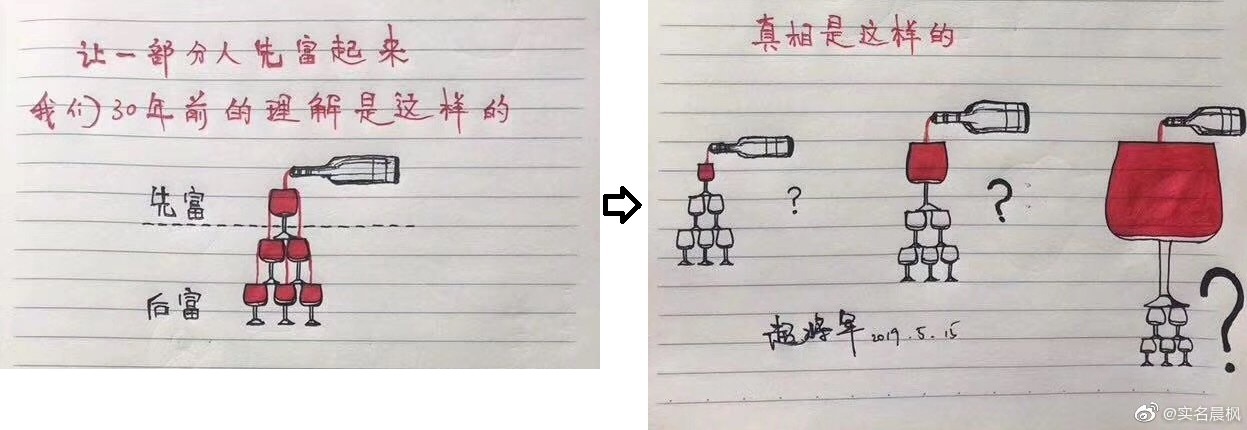 让一部分人先富起来
我们30年前的理解是这样的
先富
后富
真相是这样的
?
?
?
2019.5.15
@实名晨枫